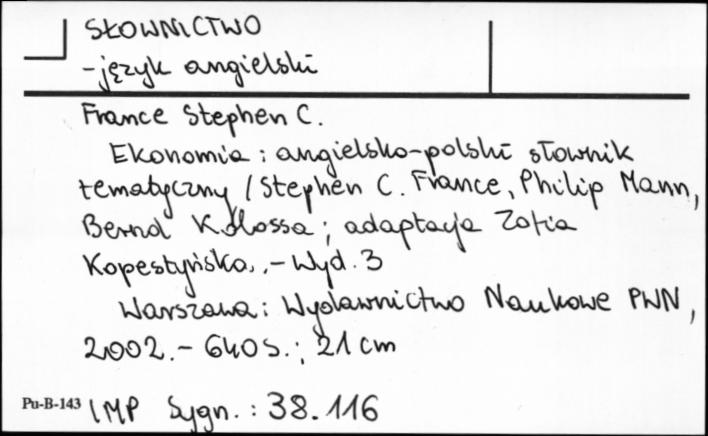 SŁOWNICTWO
- język angielski
France Stephen C.
Ekonomia : angielsko-polski słownik
tematyczny / Stephen C. France, Philip Mann,
Bernd Kolossa ; adaptacja Zofia
Kopestyńska. - Wyd. 3
Warszawa : Wydawnictwo Naukowe PWN,
2002. - 640 s. ; 21 cm
Pu-B-143 IMP Sygn. : 38.116